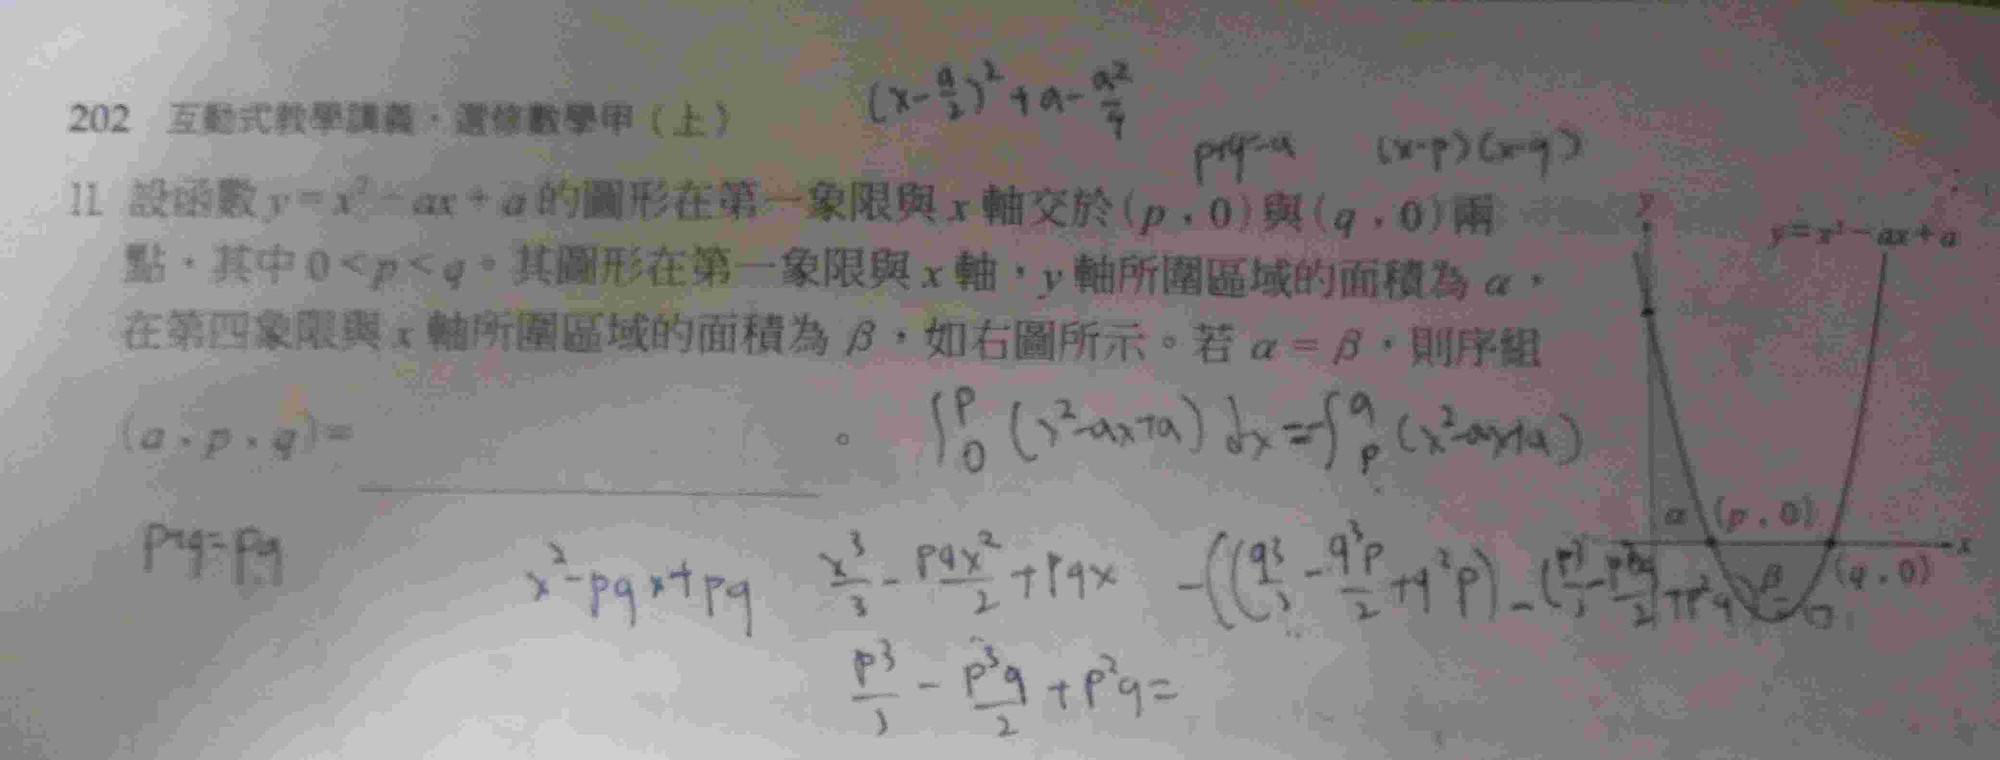 (x-\frac{a}{2})^2+a-\frac{a^2}{4}
202 互動式教學講義·選修數學甲(上)
p+q=a (x-p)(x-q)
11 設函數 y=x²-ax+a 的圖形在第一象限與 x 軸交於(p,0)與(q,0)兩
點,其中 0<p<q。其圖形在第一象限與 x 軸,y 軸所圍區域的面積為 α,
在第四象限與 x 軸所圍區域的面積為 β,如右圖所示。若 α=β,則序組
(a、p、q)= 。
y
y=x²-ax+a
\int_0^p (x^2-ax+a) dx = -\int_p^q (x^2-ax+a)
α (p,0)
x
β (q,0)
p+q=pq
x²-pqx+pq
\frac{x^3}{3}-\frac{pqx^2}{2}+pqx
-((\frac{q^3}{3}-\frac{q^3p}{2}+q^2p)-(\frac{p^3}{3}-\frac{p^3q}{2}+p^2q
\frac{p^3}{3}-\frac{p^3q}{2}+p^2q=